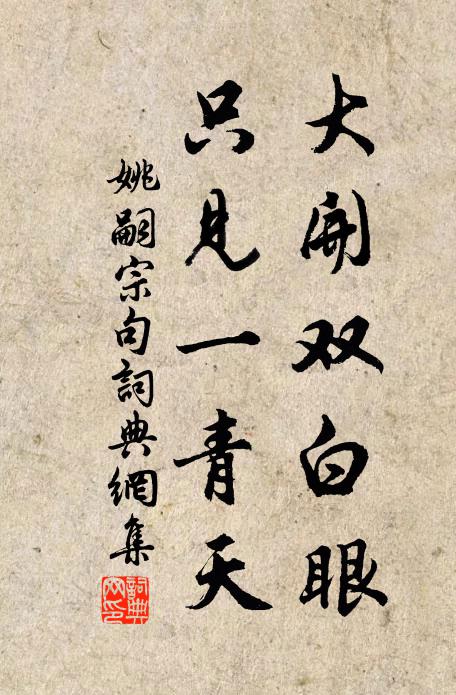 大開双白眼
只見一青天
姚嗣宗句詞典網集
詞典
网印